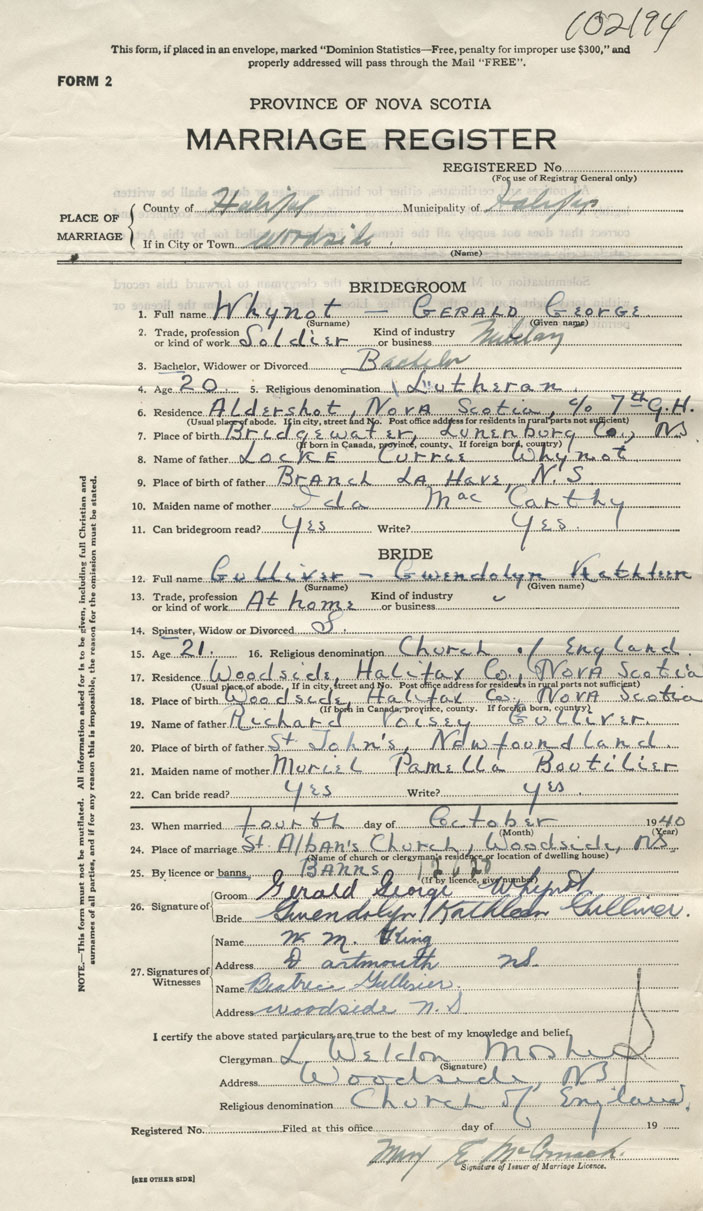 102194
This form, if placed in an envelope, marked "Dominion Statistics—Free, penalty for improper use $300," and
properly addressed will pass through the Mail "FREE".
FORM 2
PROVINCE OF NOVA SCOTIA
MARRIAGE REGISTER
REGISTERED No.
(For use of Registrar General only)
PLACE OF MARRIAGE
County of Halifax Municipality of Halifax
If in City or Town Woodside
(Name)
BRIDEGROOM
1. Full name Whynot — GERALD GEORGE
(Surname) (Given name)
2. Trade, profession or kind of work Soldier Kind of industry or business Military
3. Bachelor, Widower or Divorced Bachelor
4. Age 20 5. Religious denomination Lutheran
6. Residence Aldershot, Nova Scotia, c/o 7th G.H.
(Usual place of abode. If in city, street and No. Post office address for residents in rural parts not sufficient)
7. Place of birth Bridgewater, Lunenburg Co., NS
(If born in Canada, province, county. If foreign born, country)
8. Name of father LOCKE Currie Whynot
9. Place of birth of father Branch La Have, N.S
10. Maiden name of mother Ida Mac Carthy
11. Can bridegroom read? Yes Write? Yes.
BRIDE
12. Full name Gulliver — Gwendolyn Kathleen
(Surname) (Given name)
13. Trade, profession or kind of work At home Kind of industry or business
14. Spinster, Widow or Divorced S.
15. Age 21. 16. Religious denomination Church of England
17. Residence Woodside, Halifax Co., Nova Scotia
(Usual place of abode. If in city, street and No. Post office address for residents in rural parts not sufficient)
18. Place of birth Woodside, Halifax Co., Nova Scotia
(If born in Canada, province, county. If foreign born, country)
19. Name of father Richard Voisey Gulliver
20. Place of birth of father St John's, Newfoundland
21. Maiden name of mother Muriel Pamella Boutilier
22. Can bride read? Yes Write? Yes
23. When married fourth day of October 1940
(Month) (Year)
24. Place of marriage St Alban's Church, Woodside, NS
(Name of church or clergyman's residence or location of dwelling house)
25. By licence or banns BANNS
(If by licence, give number)
26. Signature of
Groom Gerald George Whynot
Bride Gwendolyn Kathleen Gulliver.
27. Signatures of Witnesses
Name W. M. King
Address Dartmouth NS.
Name Beatrice Gulliver.
Address Woodside N.S
I certify the above stated particulars are true to the best of my knowledge and belief,
Clergyman L Weldon Mosher
(Signature)
Address Woodside, NS
Religious denomination Church of England.
Registered No. Filed at this office day of 19
Mary E McCormack.
Signature of Issuer of Marriage Licence.
[SEE OTHER SIDE]
NOTE.—This form must not be mutilated. All information asked for is to be given, including full Christian and
surnames of all parties, and if for any reason this is impossible, the reason for the omission must be stated.